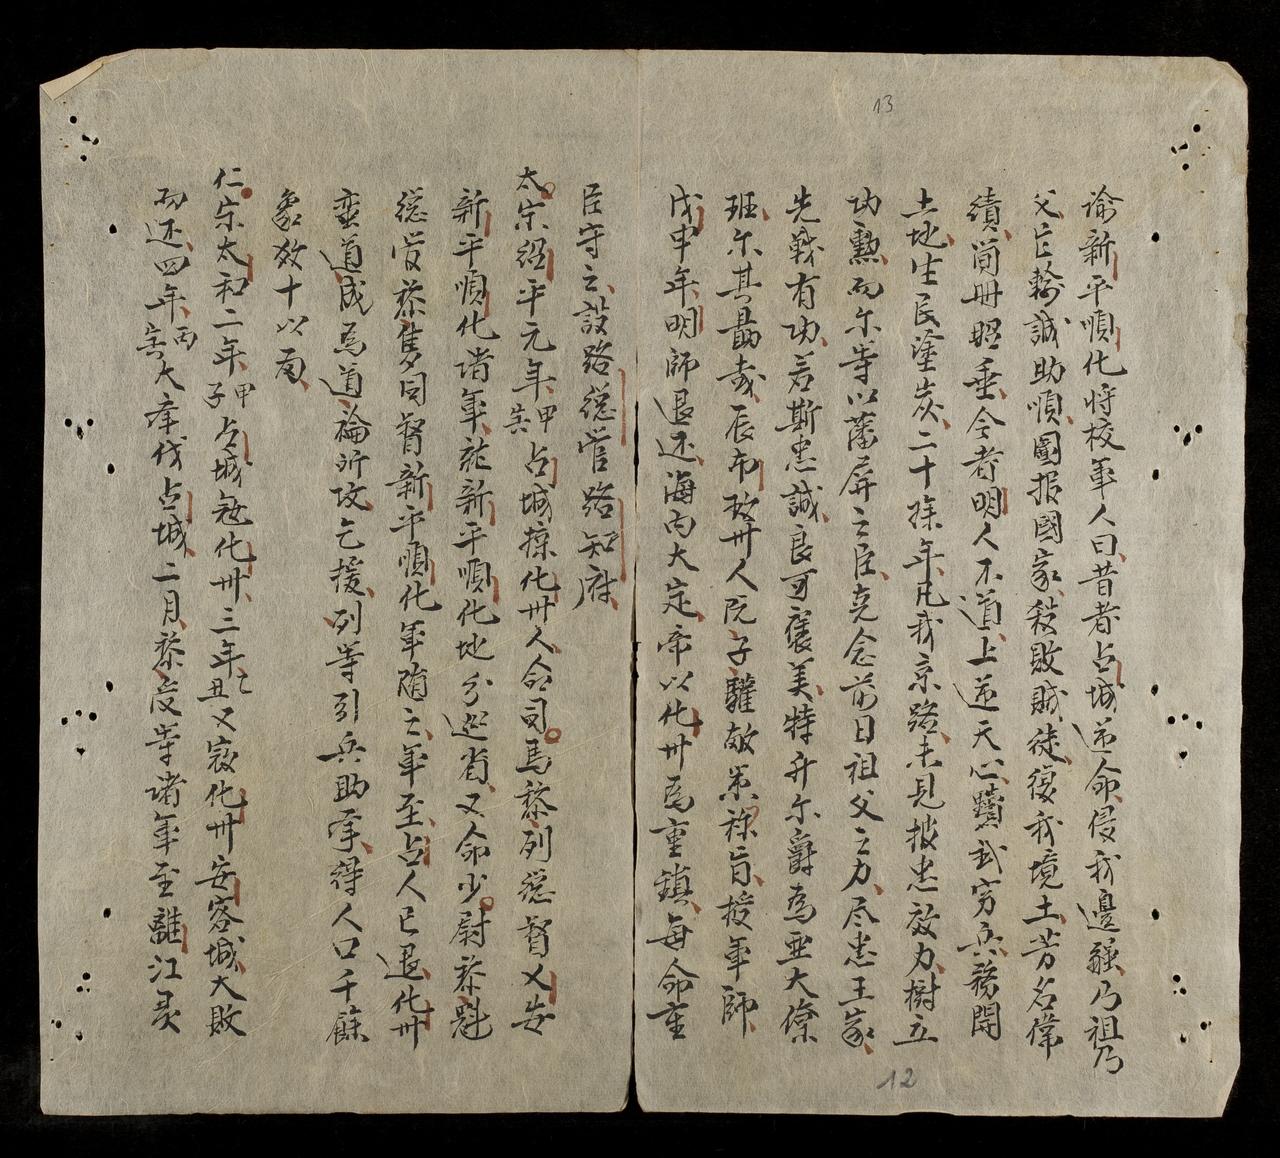 13
諭新平順化将校軍人曰昔者占城逆命侵我邊疆乃祖乃
父亡輸誠助順圖报國家殺敗賊徒復我境土芳名偉
績简冊昭垂今者明人不道上逆天心黷武窮兵務開
土地生民塗炭二十揉年凡我京路未見披忠效力樹立
功勲而尔等以藩屏之臣克念前日祖父之力尽忠王家
先戰有功若斯忠誠良可褒美特升尔爵為亜大僚
班尔其勗哉辰布政卅人阮子驩敵枲祿旨授軍師
戊申年明師退还海内大定帝以化卅為重鎮每命重
臣守之設路總管路知府
太宗紹平元年甲寅占城掠化卅人命司馬黎列總督乂安
新平順化诸軍龍新平順化地分巡省又命少尉黎魁
總管黎隻同督新平順化軍随之軍至占人已退化卅
蛮道成為道論所攻乞援列等引兵助擊得人口千餘
象数十以歸
仁宗太和二年甲子占城寇化卅三年乙丑又寇化卅安容城大敗
而还四年丙寅大舉伐占城二月黎受等诸軍至離江昃
12